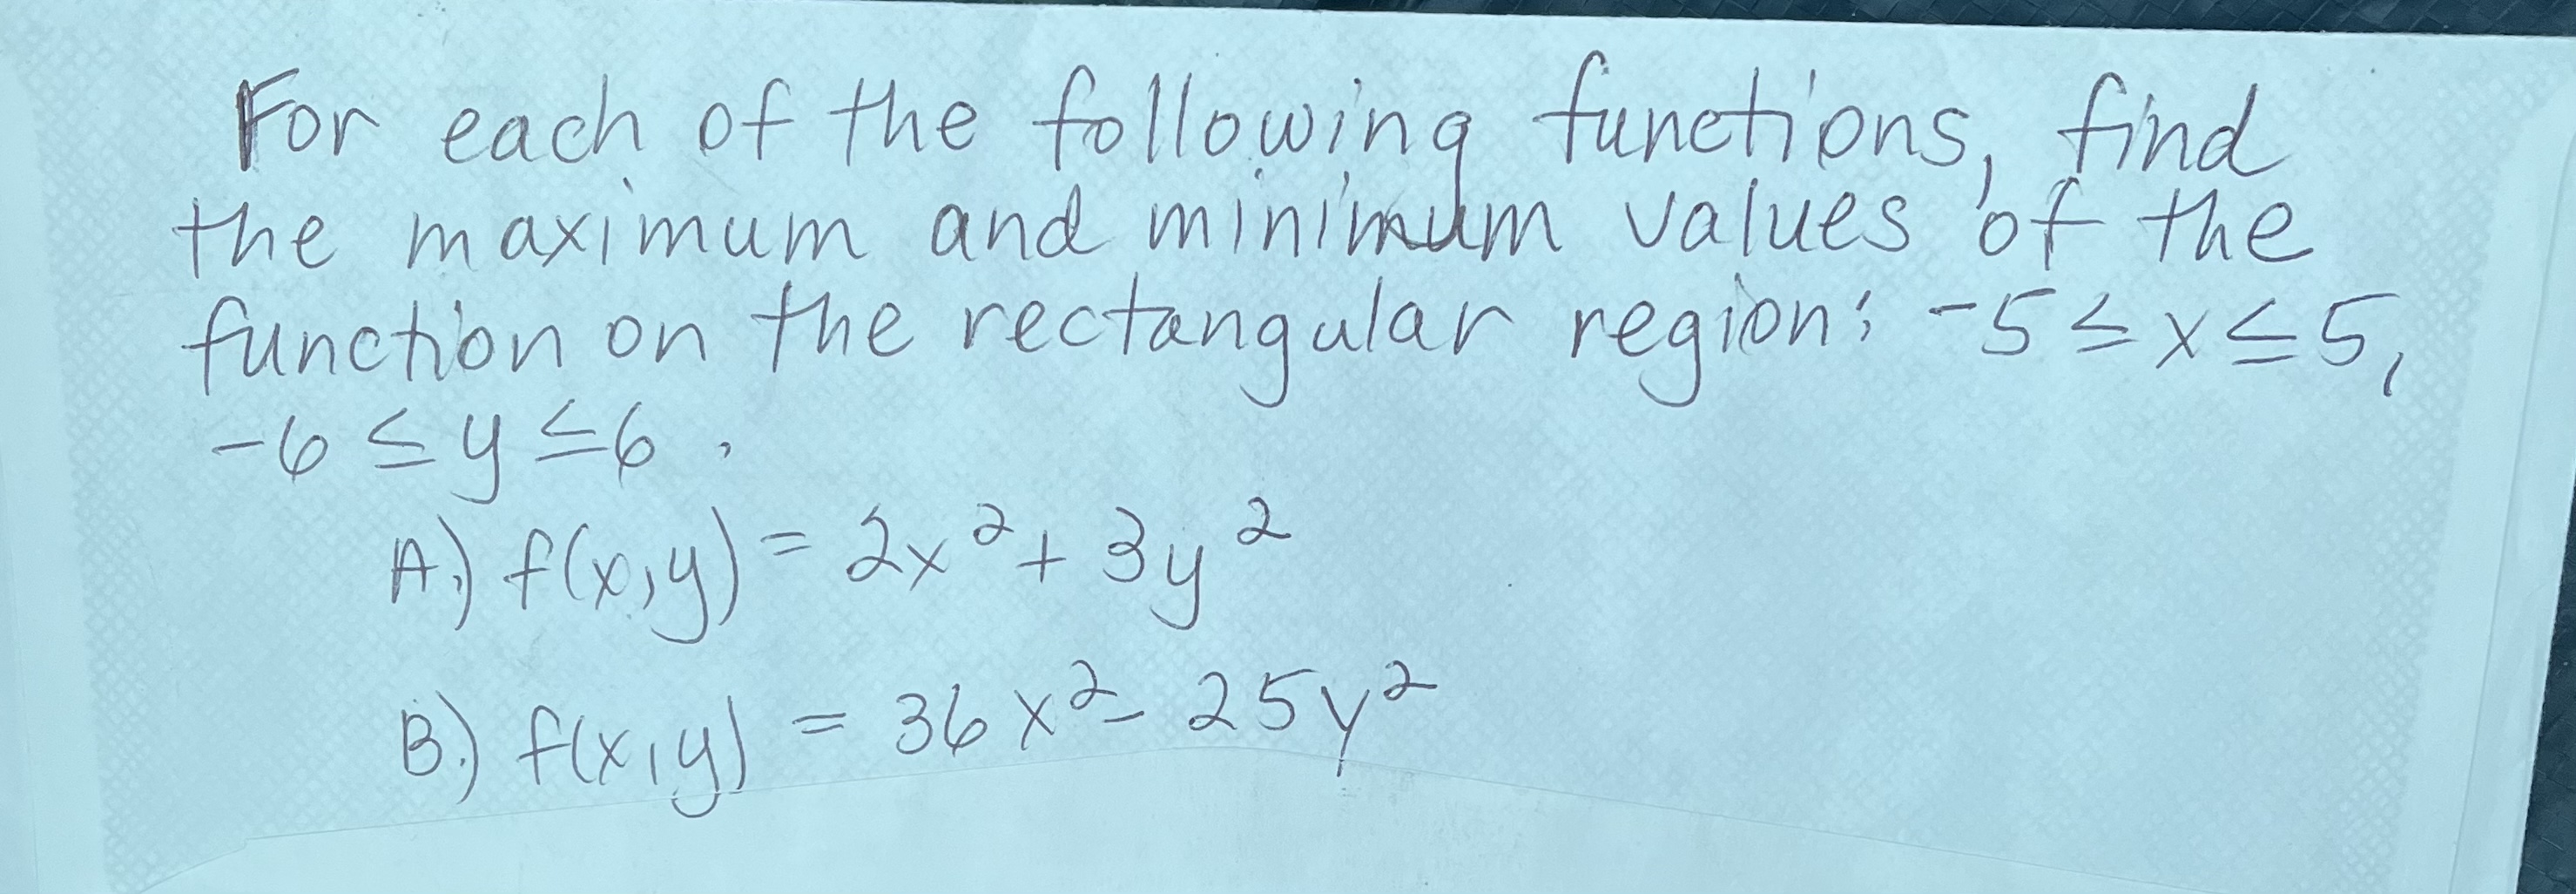 For each of the following functions, find
the maximum and minimum values of the
function on the rectangular region: -5 ≤ x ≤ 5,
-6 ≤ y ≤ 6.
A.) f(x,y) = 2x² + 3y²
B.) f(x,y) = 36x² - 25y²